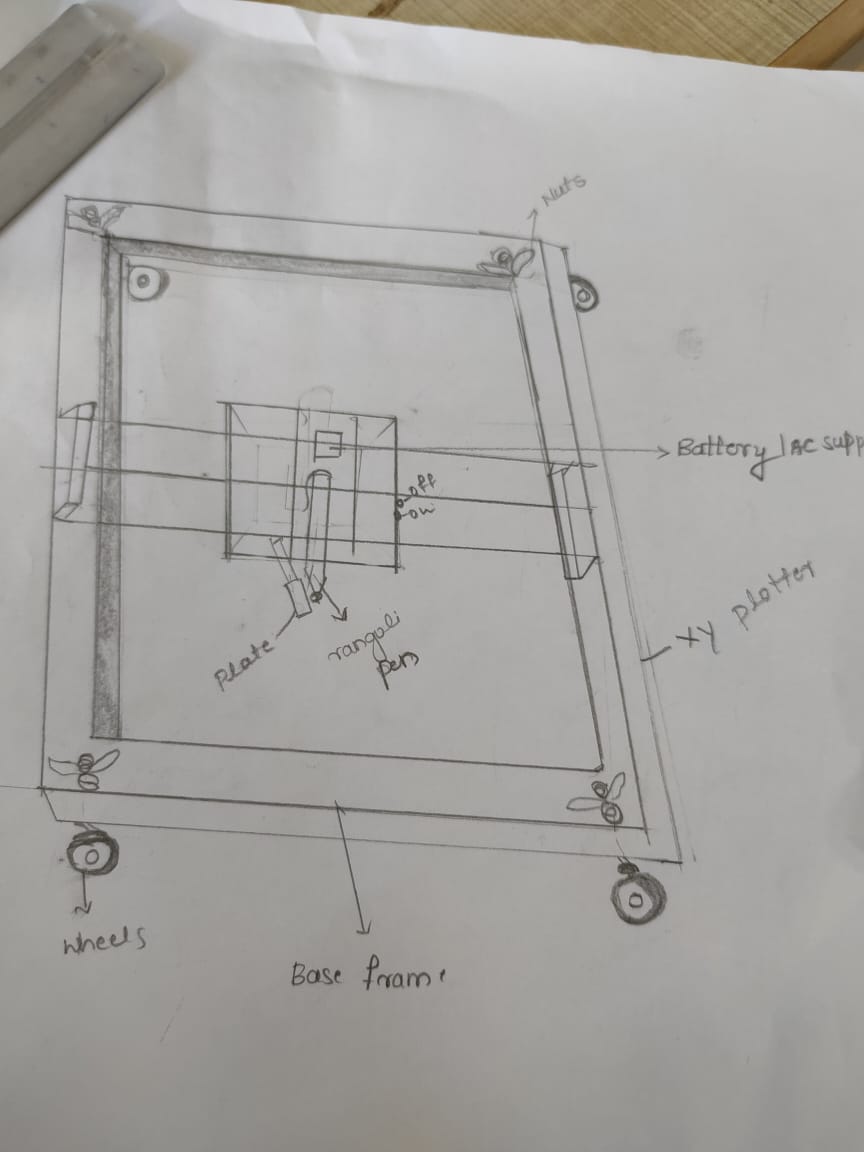 Nuts
Battery | AC supp
off
on
XY plotter
Plate
rangoli
pen
wheels
Base frame